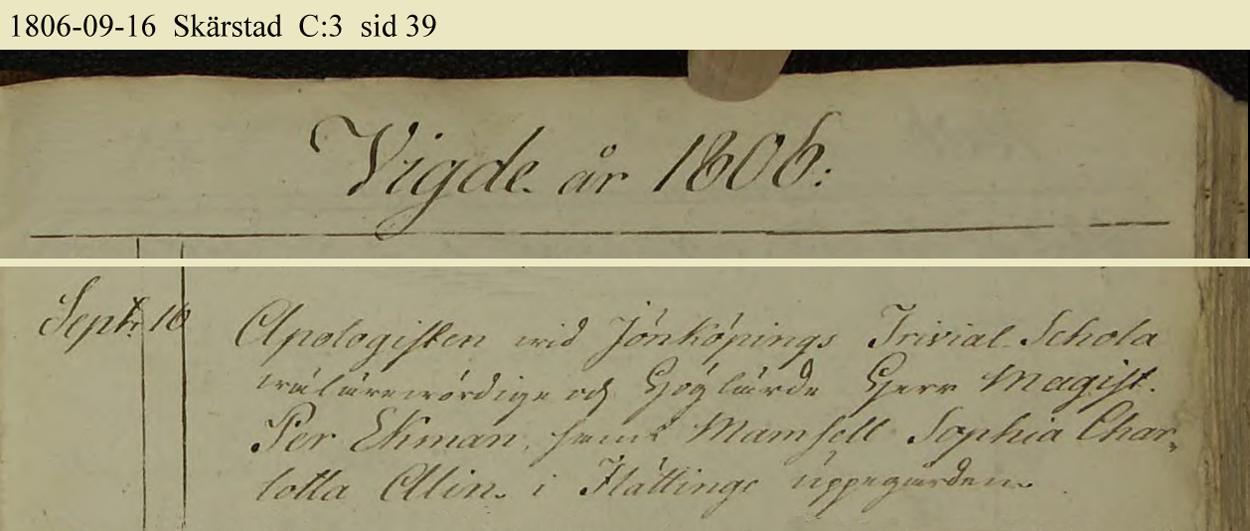 1806-09-16 Skärstad C:3 sid 39
Vigde år 1806:
Sept: 16 Apologisten wid Jönköpings Trivial Schola
wälärewördige och Höglärde Herr Magist.
Per Ekman, samt Mamsell Sophia Char-
lotta Allin i Flättinge uppegården